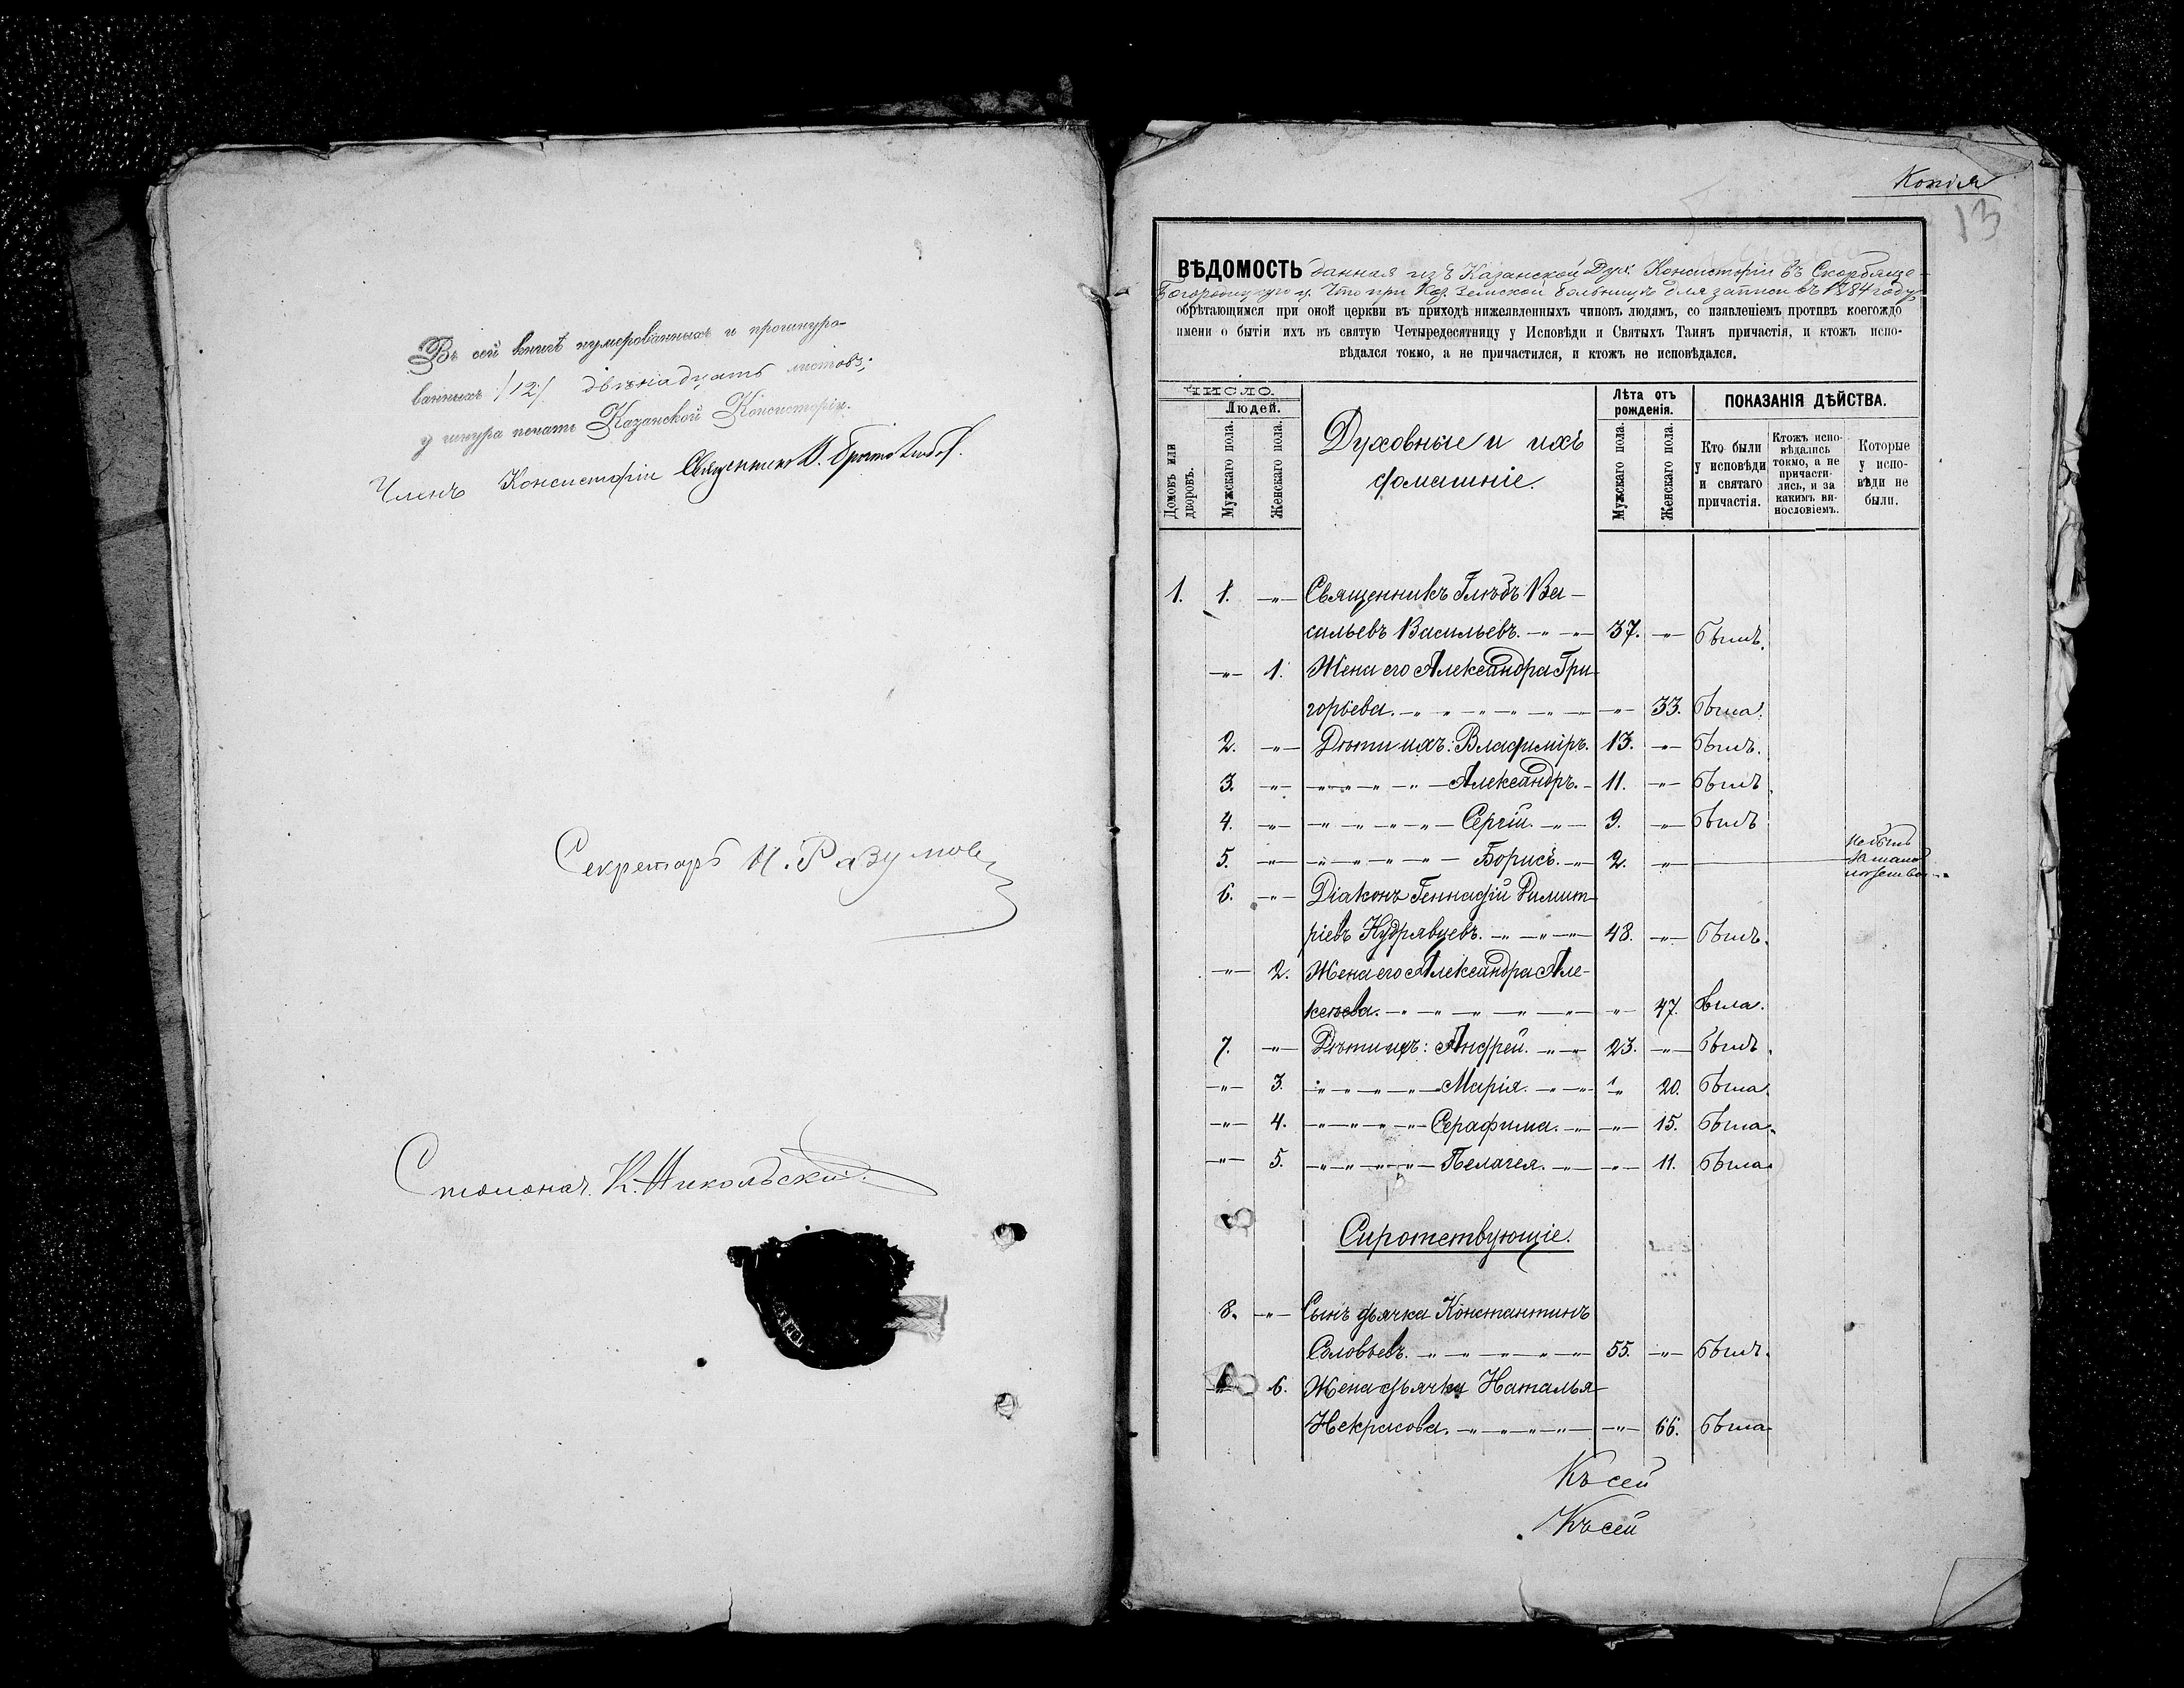 Въ сей книгѣ нумерованныхъ и прошнуро-
ванныхъ /12/ двѣнадцать листовъ;
у шнура печать Казанской Консисторіи.
Членъ Консисторіи Священникъ
Секретарь Н. Разумов
Столонач. К. Никольскій.
Копія
13
ВѢДОМОСТЬ данная изъ Казанской Дух. Консисторіи въ Скорбяще-
Богородицкую ц. что при Каз. Земской больницѣ для записи въ 1884 году
обрѣтающимся при оной церкви въ приходѣ нижеявленныхъ чиновъ людямъ, со изявленіемъ противъ коегождо
имени о бытіи ихъ въ святую Четыредесятницу у Исповѣди и Святыхъ Таинъ причастія, и ктожъ испо-
вѣдался токмо, а не причастился, и ктожъ не исповѣдался.
ЧИСЛО.
Людей.
Домовъ или дворовъ.
Мужскаго пола.
Женскаго пола.
Духовные и ихъ
домашніе.
Лѣта отъ рожденія.
Мужскаго пола.
Женскаго пола.
ПОКАЗАНІЯ ДѢЙСТВА.
Кто были у исповѣди и святаго причастія.
Ктожъ испо-вѣдались токмо, а не причасти-лись, и за какимъ ви-нословіемъ.
Которые у испо-вѣди не были.
1. 1. -"- Священникъ Глѣбъ Ва-
сильевъ Васильевъ. -"- -"- 37. -"- былъ.
-"- 1. Жена его Александра Гри-
горьева. -"- 33. была.
2. -"- Дѣти ихъ: Владиміръ. 13. -"- былъ.
3. -"- Александръ. 11. -"- былъ.
4. -"- Сергій. -"- 9. -"- былъ
5. -"- Борисъ. -"- 2. -"- не былъ
за мало
лѣтствомъ
6. -"- Діаконъ Геннадій Димит-
ріевъ Кудрявцевъ. -"- 48. -"- былъ.
-"- 2. Жена его Александра Але-
ксѣева. -"- 47. была.
7. -"- Дѣти ихъ: Андрей. -"- 23. -"- былъ.
-"- 3. Марія. -"- 20. была.
-"- 4. Серафима. -"- 15. была.
-"- 5. Пелагея. -"- 11. была.
Сиротствующіе.
8. -"- Сынъ дьячка Константинъ
Соловьевъ. -"- 55. -"- былъ.
-"- 6. Жена дьячка Наталья
Некрасова. -"- 66. была
Къ сей
Къ сей